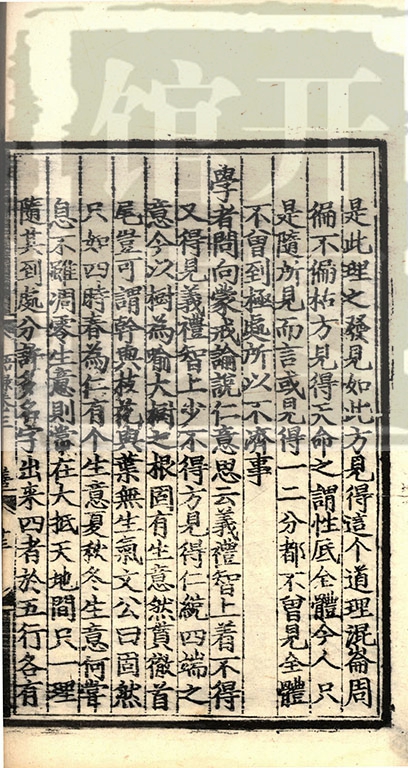 是此理之發見如此方見得這个道理混崙周
徧不偏枯方見得天命之謂性底全體今人只
是隨所見而言或見得一二分都不曾見全體
不曾到極處所以不濟事
學者問向蒙戒論說仁意思云義禮智上着不得
又得見義禮智上少不得方見得仁統四端之
意今以樹為喻夫樹之根固有生意然貫徹首
尾豈可謂幹與枝花與葉無生氣文公曰固然
只如四時春為仁有个生意夏秋冬生意何嘗
息不雖凋零生意則常在大抵天地間只一理
隨其到處分許多名字出来四者於五行各有